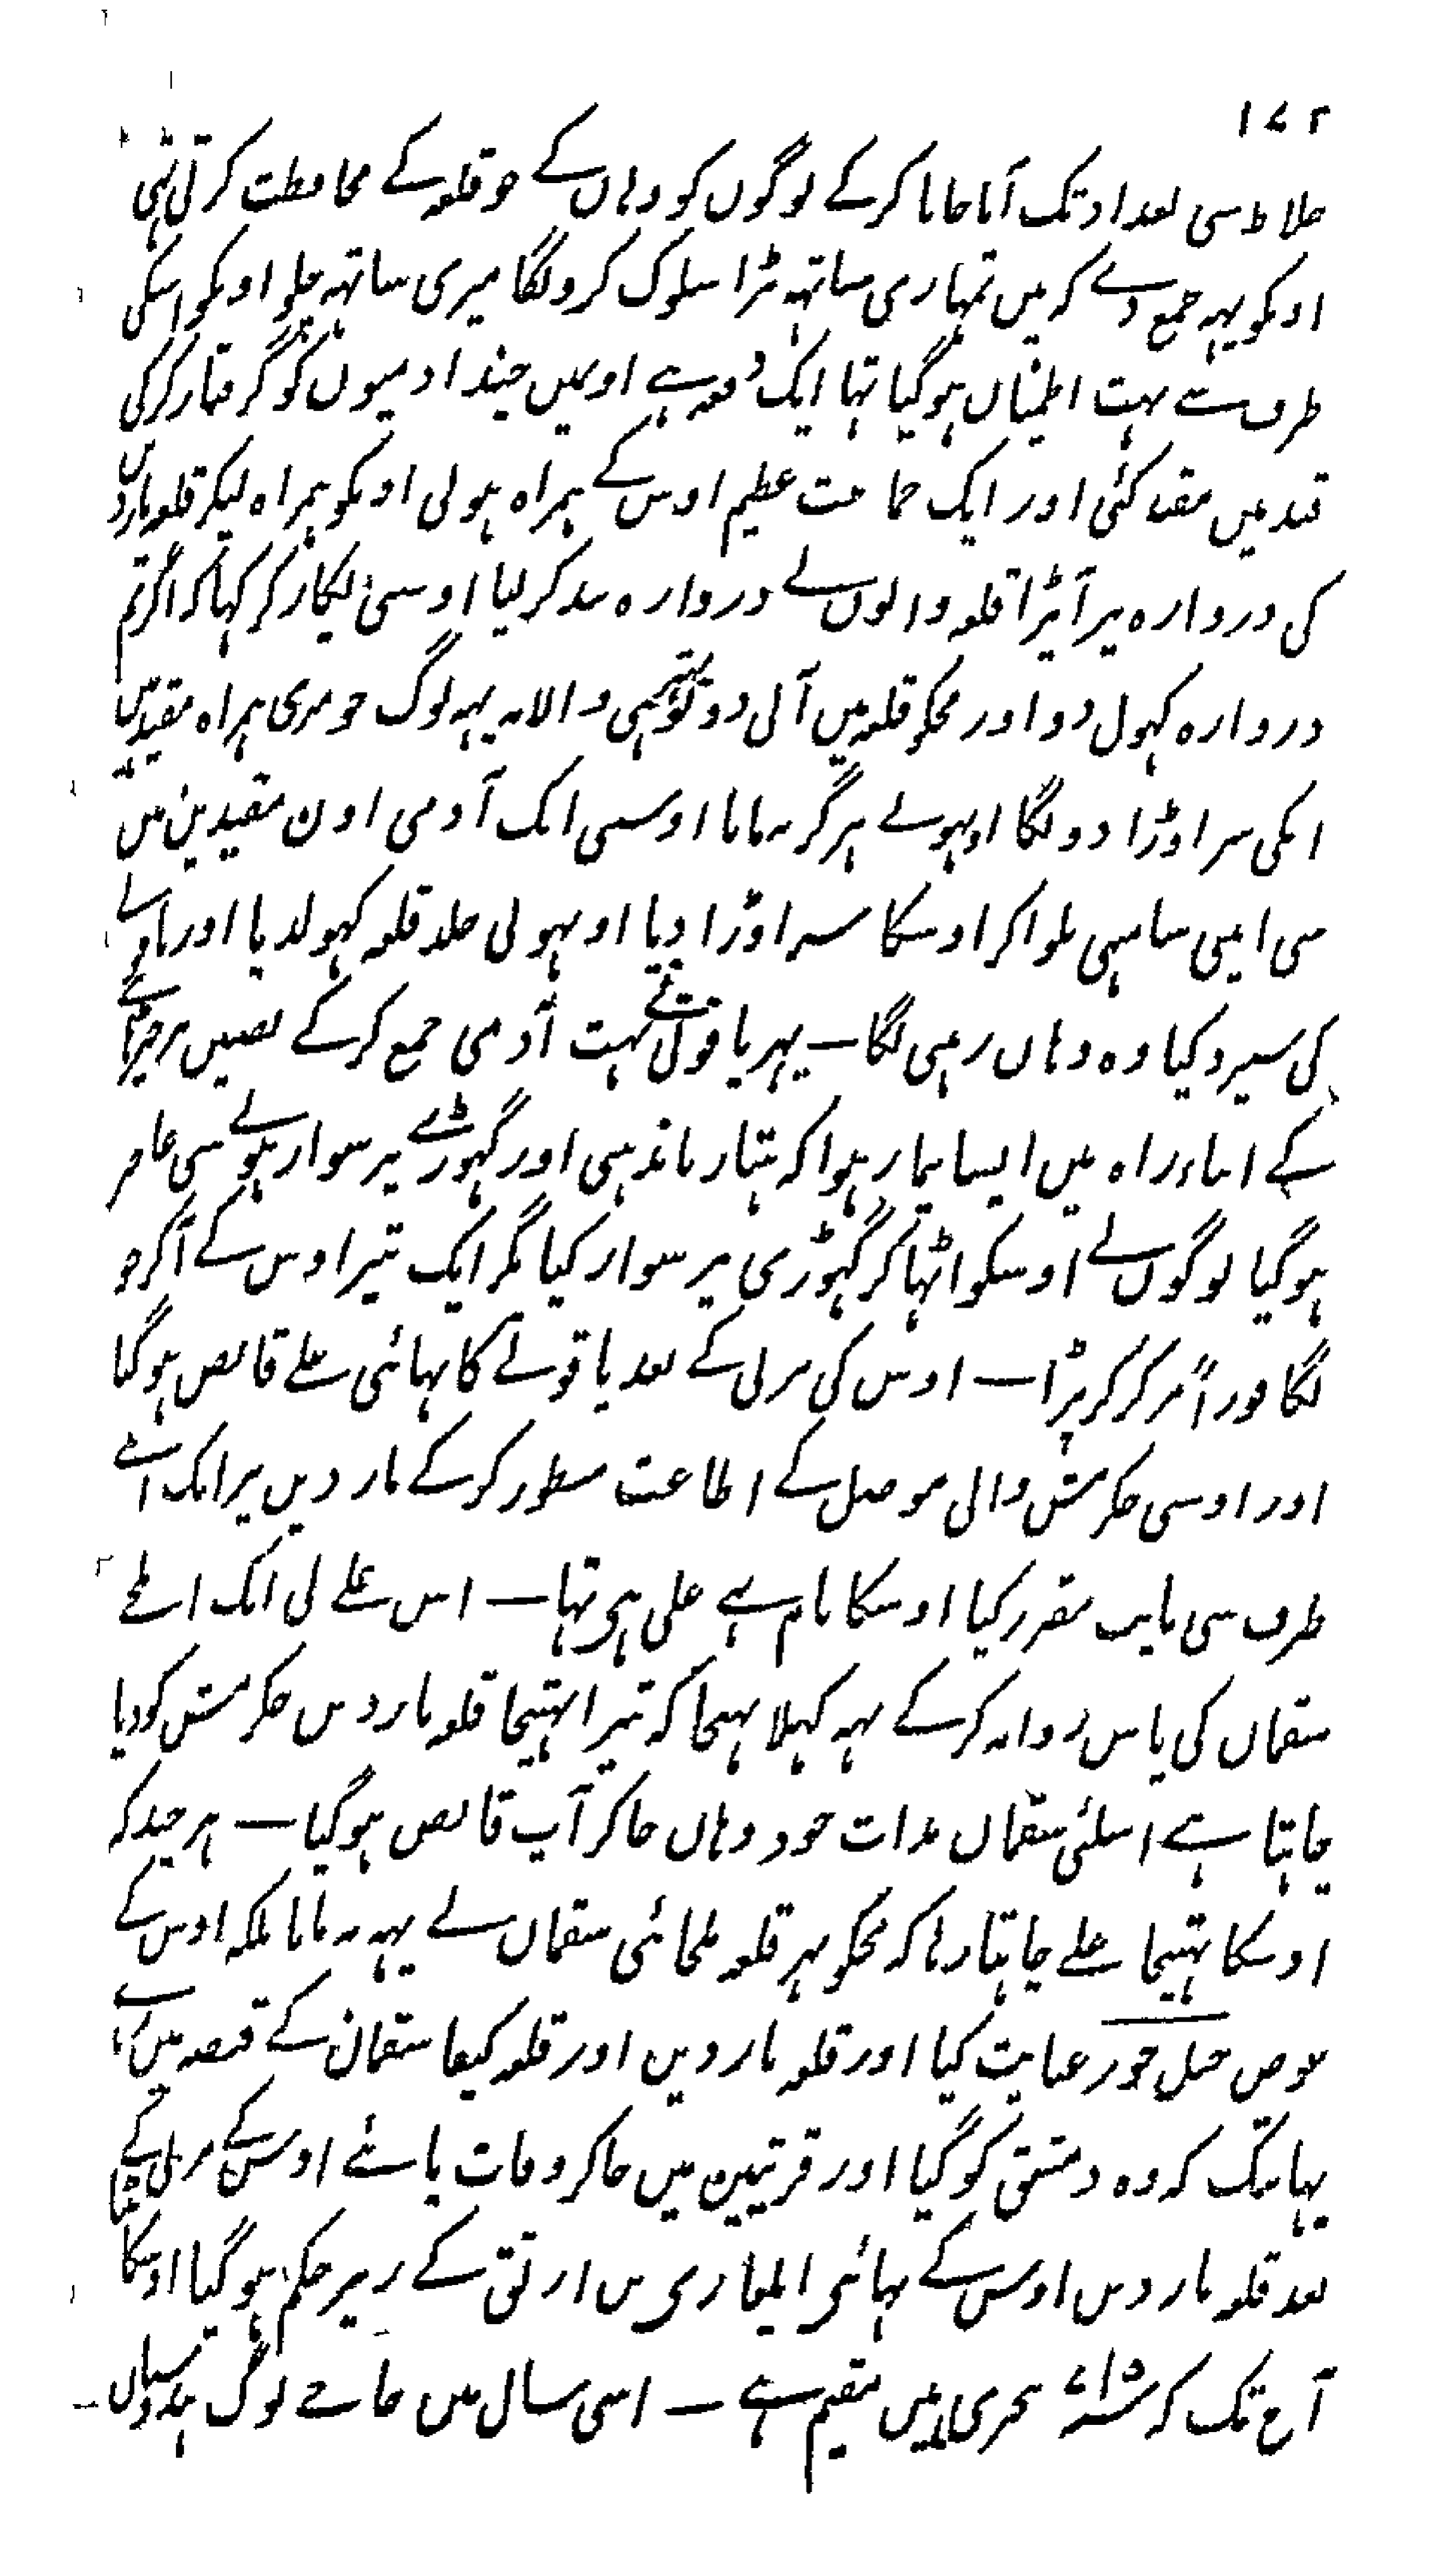 ۱۷۲
خلاط سی بغداد تک آیا جایا کرکے لوگوں کو وہاں کے جو قلعہ کے محافظت کرتی تہی
اونکو یہہ جمع دے کہ میں تمہاری ساتہہ بڑا سلوک کرونگا میری ساتہہ چلو اونکو اسکی
طرف سے بہت اطمینان ہوگیا تہا ایک دفعہ ہے اونمیں چند ادمیوں کو گرفتار کرکی
قید میں مقید کئی اور ایک جماعت عظیم اوس کے ہمراہ ہولی اونکو ہمراہ لیکر قلعہ ماردین
کی دروازہ پر آپڑا قلعہ والوں نے دروازہ بند کرلیا اوسنی پکار کر کہا کہ اگر تم
دروازہ کہول دو اور مجکو قلعہ میں آنی دو تو بہتر ہی والا نہ یہہ لوگ جو میری ہمراہ مقید ہیں
انکی سر اوڑا دونگا اونہونے ہرگز نہ مانا اوسنی ایک آدمی اون مقیدین میں
سی اپنی سامہنی بلواکر اوسکا سر اوڑا دیا اونہونی جلد قلعہ کہولدیا اور یاقوتے
کی سپرد کیا وہ وہاں رہنی لگا ـ پہر یاقوتی نے بہت آدمی جمع کرکے نصیبین پر چڑہائی
کے اثناء راہ میں ایسا بیمار ہوا کہ ہتیار باندہنی اور گہوڑے پر سوار ہونے سی عاجز
ہوگیا لوگوں نے اوسکو اٹہا کر گہوڑی پر سوار کیا مگر ایک تیر اوس کے آکر جو
لگا فوراً مر کر گر پڑا ـ اوس کی مرنی کے بعد یاقوتے کا بہائی علے قابض ہوگیا
اور اوسی جکرمش والی موصل کے اطاعت منظور کرکے ماردین پر ایک اپنے
طرف سی نایب مقرر کیا اوسکا نام بہے علی ہی تہا ـ اس علے نی ایک ایلچے
سقمان کی پاس روانہ کرکے یہہ کہلا بہیجا کہ تیرا بہتیجا قلعہ ماردین جکرمش کو دیا
چاہتا ہے اسلئی سقمان بذات خود وہاں جاکر آپ قابض ہوگیا ـ ہرچند کہ
اوسکا بہتیجا علے چاہتا رہا کہ مجکو پہر قلعہ ملجائی سقمان نے یہہ نہ مانا بلکہ اوس کے
عوض جبل جور عنایت کیا اور قلعہ ماردین اور قلعہ کیفا سقمان کے قبضہ میں
یہانتک کہ وہ دمشق کو گیا اور قریتین میں جاکر وفات پائے اوس کے مرنی کے
بعد قلعہ ماردین اوس کے بہائی ایلغازی بن ارتق کے زیر حکم ہوگیا اوسکا
آج تک کہ ۷۱۵ ہجری ہیں مقیم ہے ـ اسی سال میں جاتے لوگ ہندوستان